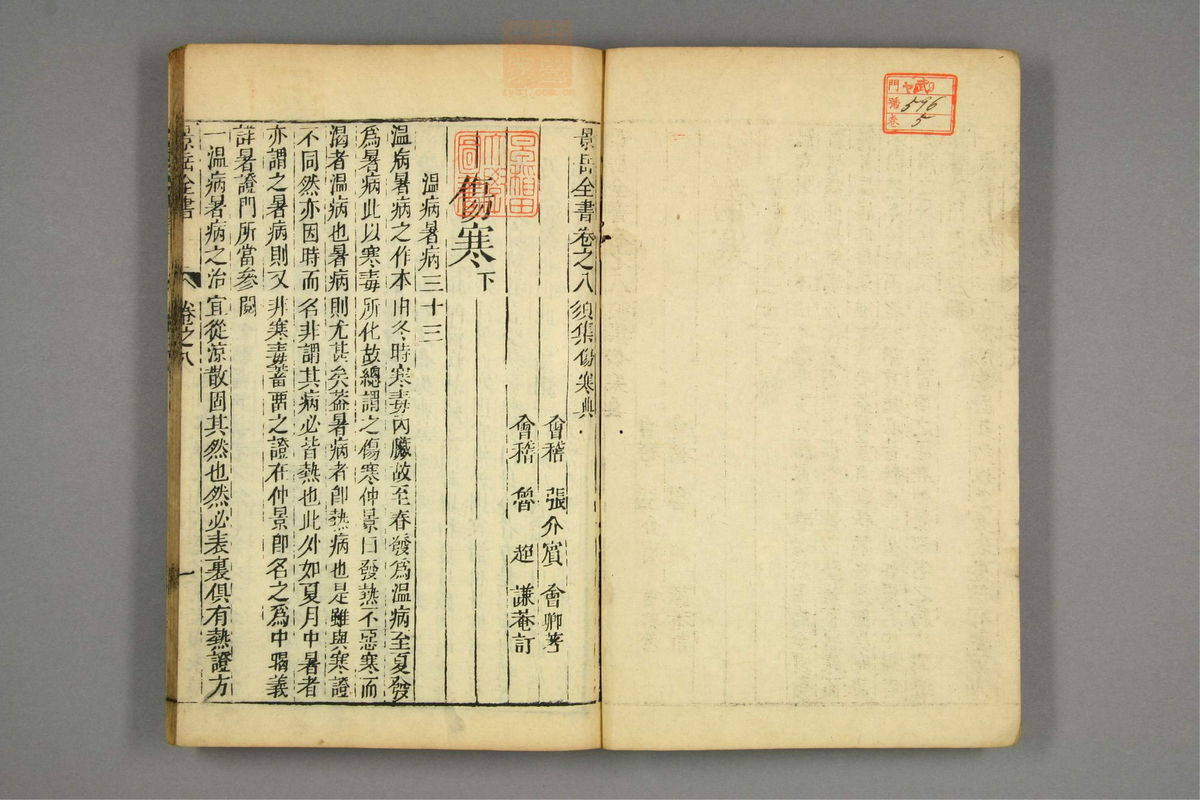 門 號 卷
596
5
景岳全書卷之八 須集傷寒典
會稽 張介賓 會卿著
會稽 魯超 謙菴訂
傷寒下
溫病暑病三十三
溫病暑病之作本由冬時寒毒內臟故至春發爲溫病至夏發
爲暑病此以寒毒所化故總謂之傷寒仲景曰發熱不惡寒而
渴者溫病也暑病則尤甚矣葢暑病者卽熱病也是雖與寒證
不同然亦因時而名非謂其病必皆熱也此外如夏月中暑者
亦謂之暑病則又非寒毒蓄畱之證在仲景卽名之爲中暍義
詳暑證門所當參閱
一溫病暑病之治宜從涼散固其然也然必表裏俱有熱證方
景岳全書 卷之八 一